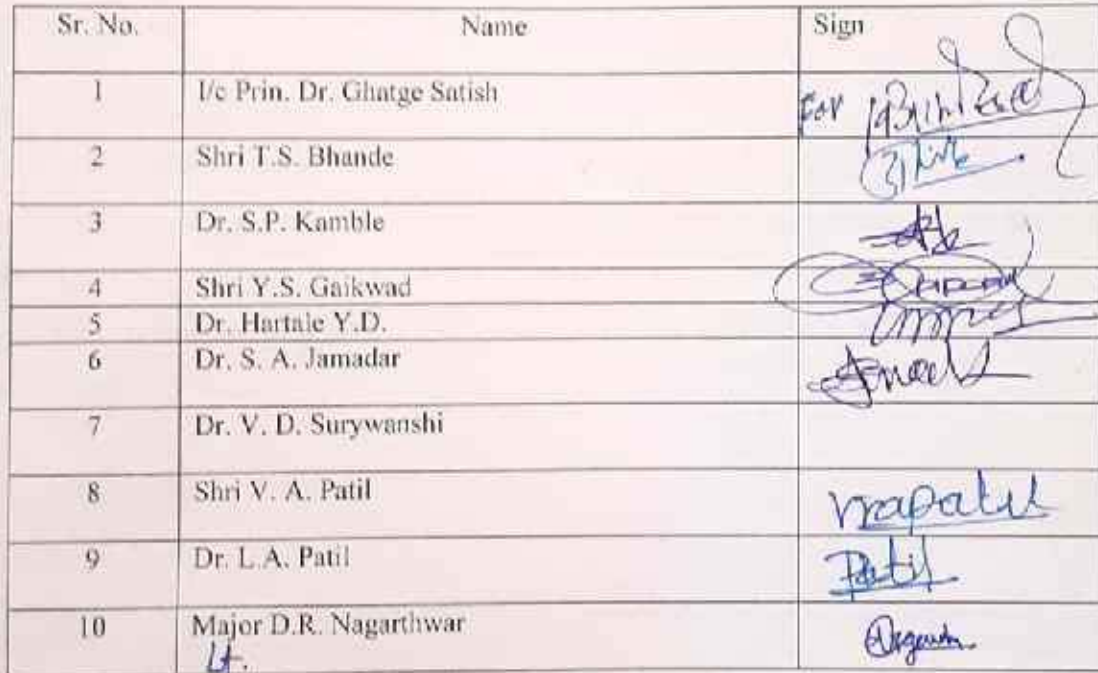 Sr. No. Name Sign
1 I/c Prin. Dr. Ghatge Satish For
2 Shri T.S. Bhande
3 Dr. S.P. Kamble
4 Shri Y.S. Gaikwad
5 Dr. Hartale Y.D.
6 Dr. S. A. Jamadar
7 Dr. V. D. Surywanshi
8 Shri V. A. Patil vapatil
9 Dr. L.A. Patil Patil
10 Major D.R. Nagarthwar
Lt.